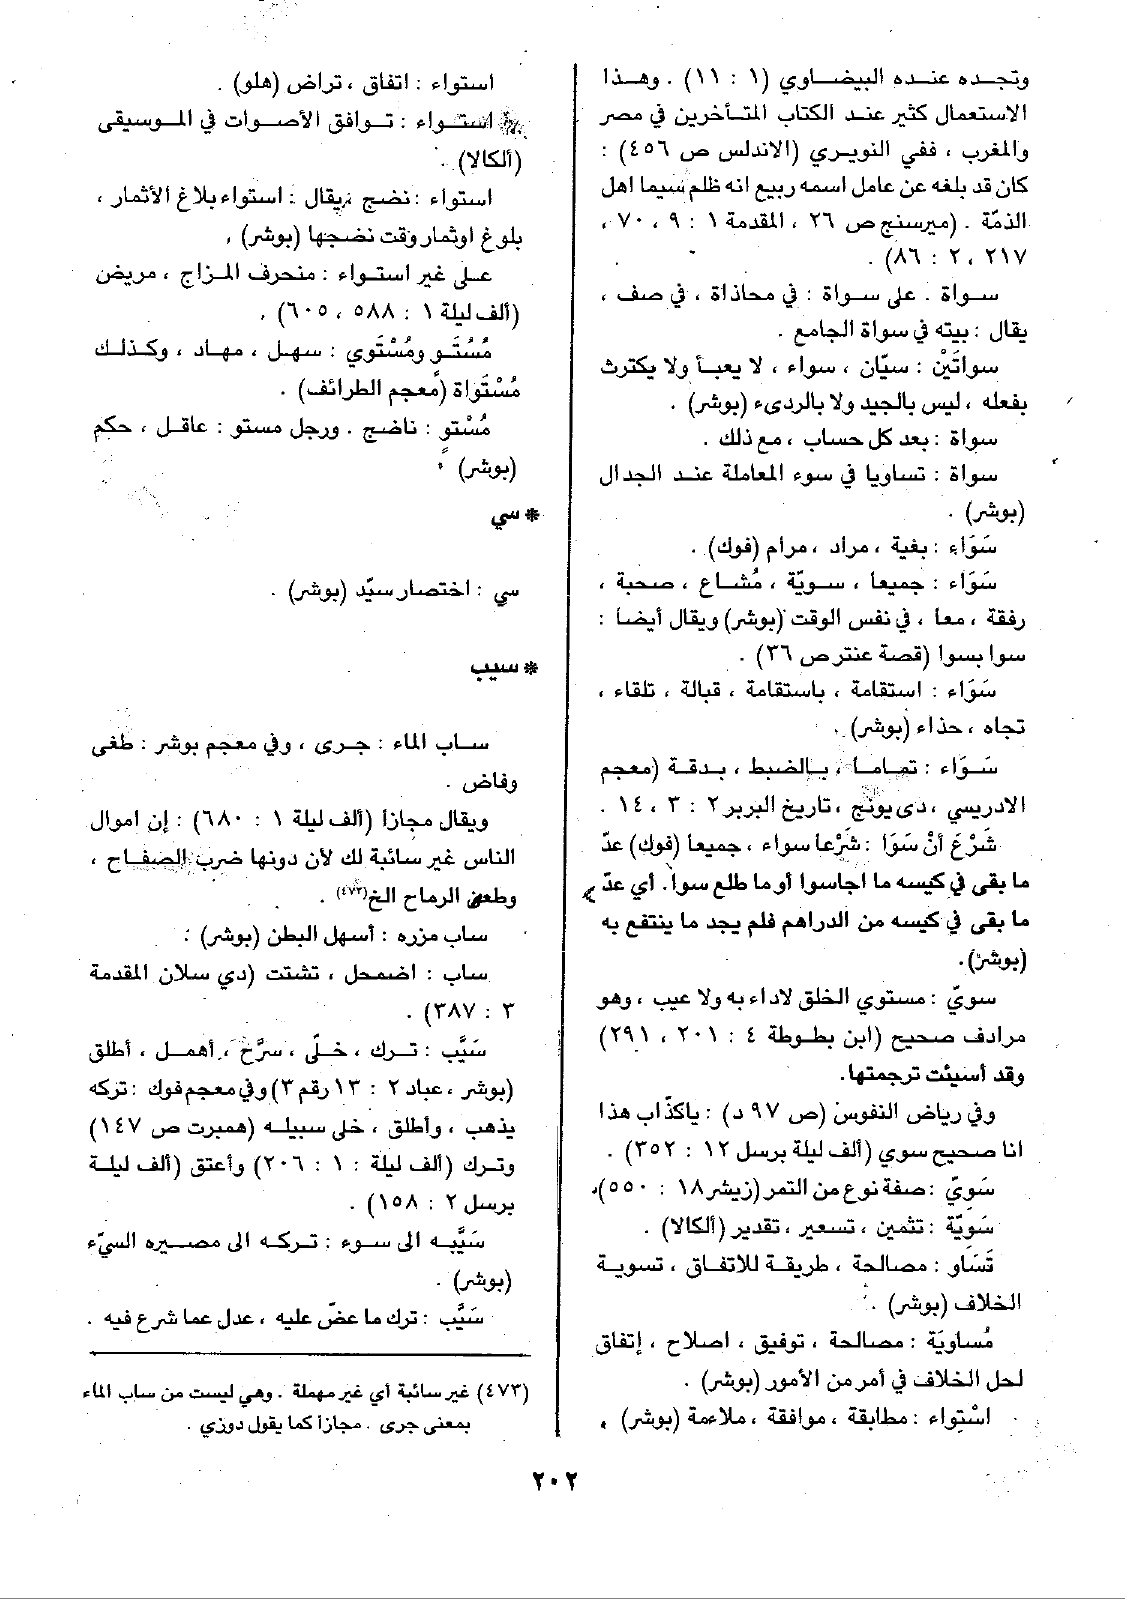 وتجده عنده البيضاوي (١ : ١١) . وهذا
الاستعمال كثير عند الكتاب المتأخرين في مصر
والمغرب ، ففي النويري (الاندلس ص ٤٥٦) :
كان قد بلغه عن عامل اسمه ربيع انه ظلم سيما اهل
الذمّة . (ميرسنج ص ٢٦ ، المقدمة ١ : ٩ ، ٧٠ ،
٢١٧ ، ٢ : ٨٦) .
سواة . على سواة : في محاذاة ، في صف ،
يقال : بيته في سواة الجامع .
سواتَيْن : سيّان ، سواء ، لا يعبأ ولا يكترث
بفعله ، ليس بالجيد ولا بالردىء (بوشر) .
سواة : بعد كل حساب ، مع ذلك .
سواة : تساويا في سوء المعاملة عند الجدال
(بوشر) .
سَوَاء : بغية ، مراد ، مرام (فوك) .
سَوَاء : جميعا ، سويّة ، مُشاع ، صحبة ،
رفقة ، معا ، في نفس الوقت (بوشر) ويقال أيضا :
سوا بسوا (قصة عنتر ص ٣٦) .
سَوَاء : استقامة ، باستقامة ، قبالة ، تلقاء ،
تجاه ، حذاء (بوشر) .
سَوَاء : تماما ، بالضبط ، بدقة (معجم
الادريسي ، دي يونج ، تاريخ البربر ٢ : ٣ ، ١٤ .
شَرْعَ أنْ سَوَا : شَرْعا سواء ، جميعا (فوك) عدّ
ما بقى في كيسه ما اجاسوا أو ما طلع سوا. أي عدّ
ما بقى في كيسه من الدراهم فلم يجد ما ينتفع به
(بوشر).
سويّ : مستوي الخلق لاداء به ولا عيب ، وهو
مرادف صحيح (ابن بطوطة ٤ : ٢٠١ ، ٢٩١)
وقد أسيئت ترجمتها.
وفي رياض النفوس (ص ٩٧ د) : ياكذّاب هذا
انا صحيح سوي (ألف ليلة برسل ١٢ : ٣٥٢) .
سَويّ : صفة نوع من التمر (زيشر ١٨ : ٥٥٠).
سَويّة : تثمين ، تسعير ، تقدير (ألكالا) .
تَسَاو : مصالحة ، طريقة للاتفاق ، تسوية
الخلاف (بوشر) .
مُساويَة : مصالحة ، توفيق ، اصلاح ، إتفاق
لحل الخلاف في أمر من الأمور (بوشر) .
اسْتِواء : مطابقة ، موافقة ، ملاءمة (بوشر) ،
استواء : اتفاق ، تراض (هلو) .
استواء : توافق الأصوات في الموسيقى
(ألكالا) .
استواء : نضج ، يقال : استواء بلاغ الأثمار ،
بلوغ اوثمار وقت نضجها (بوشر) ,
على غير استواء : منحرف المزاج ، مريض
(ألف ليلة ١ : ٥٨٨ ، ٦٠٥) ,
مُسْتَوٍ ومُسْتَوي : سهل ، مهاد ، وكذلك
مُسْتَواة (معجم الطرائف) .
مُسْتوٍ : ناضج . ورجل مستو : عاقل ، حكم
(بوشر) .
* سي
سي : اختصار سيّد (بوشر) .
* سيب
ساب الماء : جرى ، وفي معجم بوشر : طغى
وفاض .
ويقال مجازا (ألف ليلة ١ : ٦٨٠) : إن اموال
الناس غير سائبة لك لأن دونها ضرب الصفاح ،
وطعن الرماح الخ(٤٧٣) .
ساب مزره : أسهل البطن (بوشر) .
ساب : اضمحل ، تشتت (دي سلان المقدمة
٣ : ٣٨٧) .
سَيَّب : ترك ، خلّى ، سرَّح ، أهمل ، أطلق
(بوشر ، عباد ٢ : ١٣ رقم ٣) وفي معجم فوك : تركه
يذهب ، وأطلق ، خلى سبيله (همبرت ص ١٤٧)
وترك (ألف ليلة : ١ : ٢٠٦) وأعتق (ألف ليلة
برسل ٢ : ١٥٨) .
سَيَّبه الى سوء : تركه الى مصيره السيّء
(بوشر) .
سَيَّب : ترك ما عضّ عليه ، عدل عما شرع فيه .
(٤٧٣) غير سائبة أي غير مهملة . وهي ليست من ساب الماء
بمعنى جرى . مجازا كما يقول دوزي .
٢٠٢